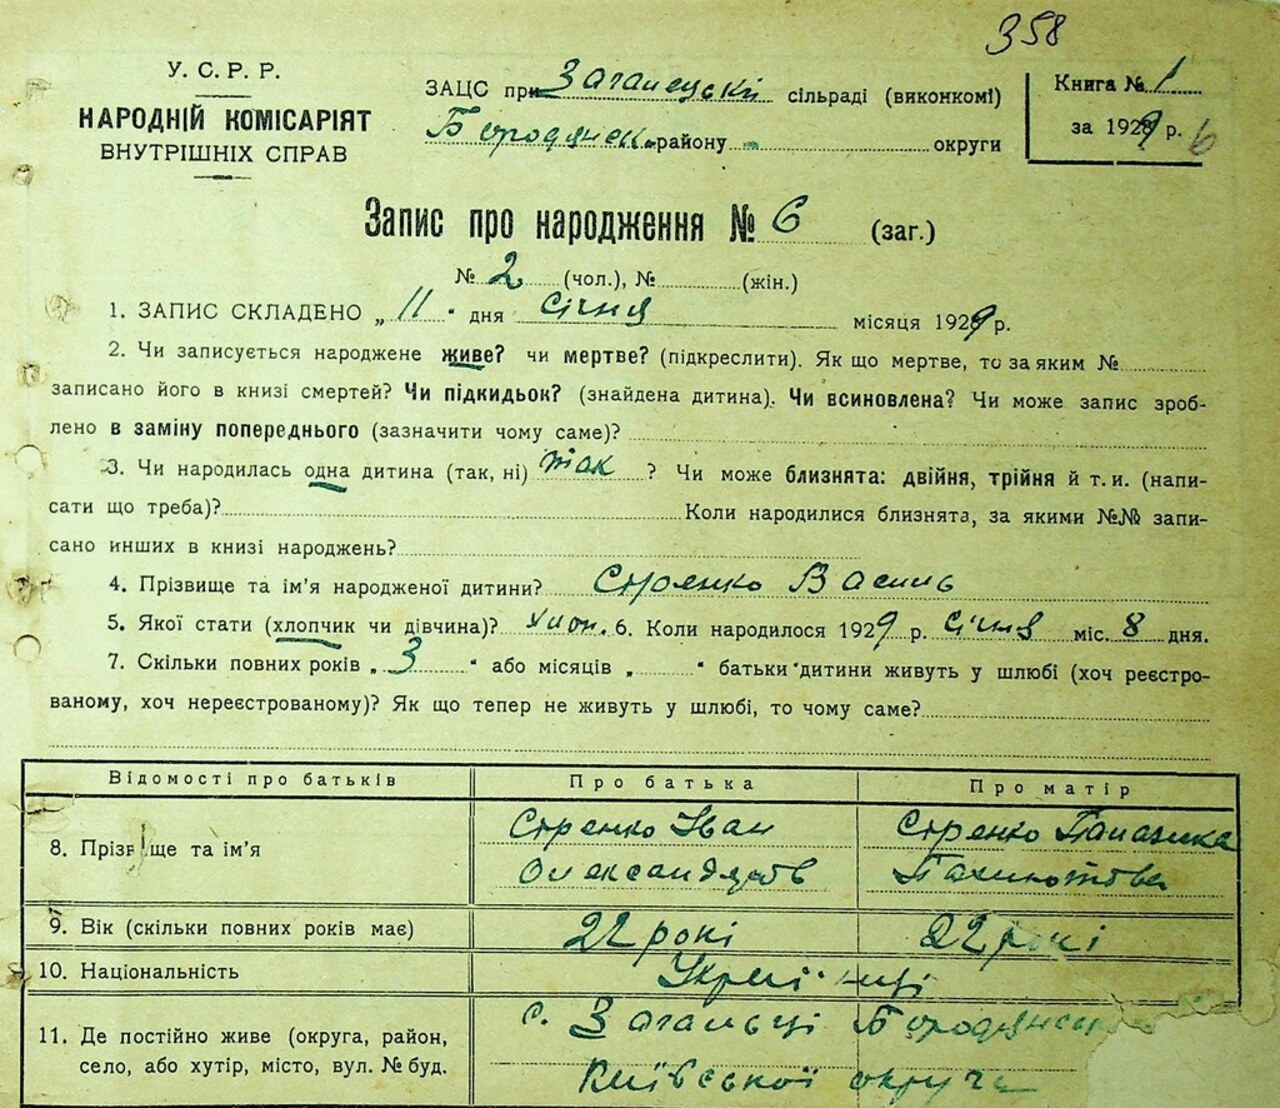 358
У. С. Р. Р.
НАРОДНІЙ КОМІСАРІЯТ
ВНУТРІШНІХ СПРАВ
ЗАЦС при Загалецькій сільраді (виконкомі)
Бородянськ. району округи
Книга № 1
за 1929 р. 6
Запис про народження № 6 (заг.)
№ 2 (чол.), № (жін.)
1. ЗАПИС СКЛАДЕНО „ 11 " дня січня місяця 1929 р.
2. Чи записується народжене живе? чи мертве? (підкреслити). Як що мертве, то за яким №
записано його в книзі смертей? Чи підкидьок? (знайдена дитина). Чи всиновлена? Чи може запис зроб-
лено в заміну попереднього (зазначити чому саме)?
3. Чи народилась одна дитина (так, ні) так ? Чи може близнята: двійня, трійня й т. и. (напи-
сати що треба)? Коли народилися близнята, за якими №№ запи-
сано инших в книзі народжень?
4. Прізвище та ім'я народженої дитини? Василь
5. Якої стати (хлопчик чи дівчина)? хлоп. 6. Коли народилося 1929 р. січня міс. 8 дня.
7. Скільки повних років „ 3 " або місяців „ " батьки дитини живуть у шлюбі (хоч реєстро-
ваному, хоч нереєстрованому)? Як що тепер не живуть у шлюбі, то чому саме?
Відомості про батьків Про батька Про матір
8. Прізвище та ім'я Стренко Іван Стренко
Олександров
9. Вік (скільки повних років має) 22 рокі 22 рокі
10. Національність Українці
11. Де постійно живе (округа, район, с. Загальці Бородянськ
село, або хутір, місто, вул. № буд. Київської округи